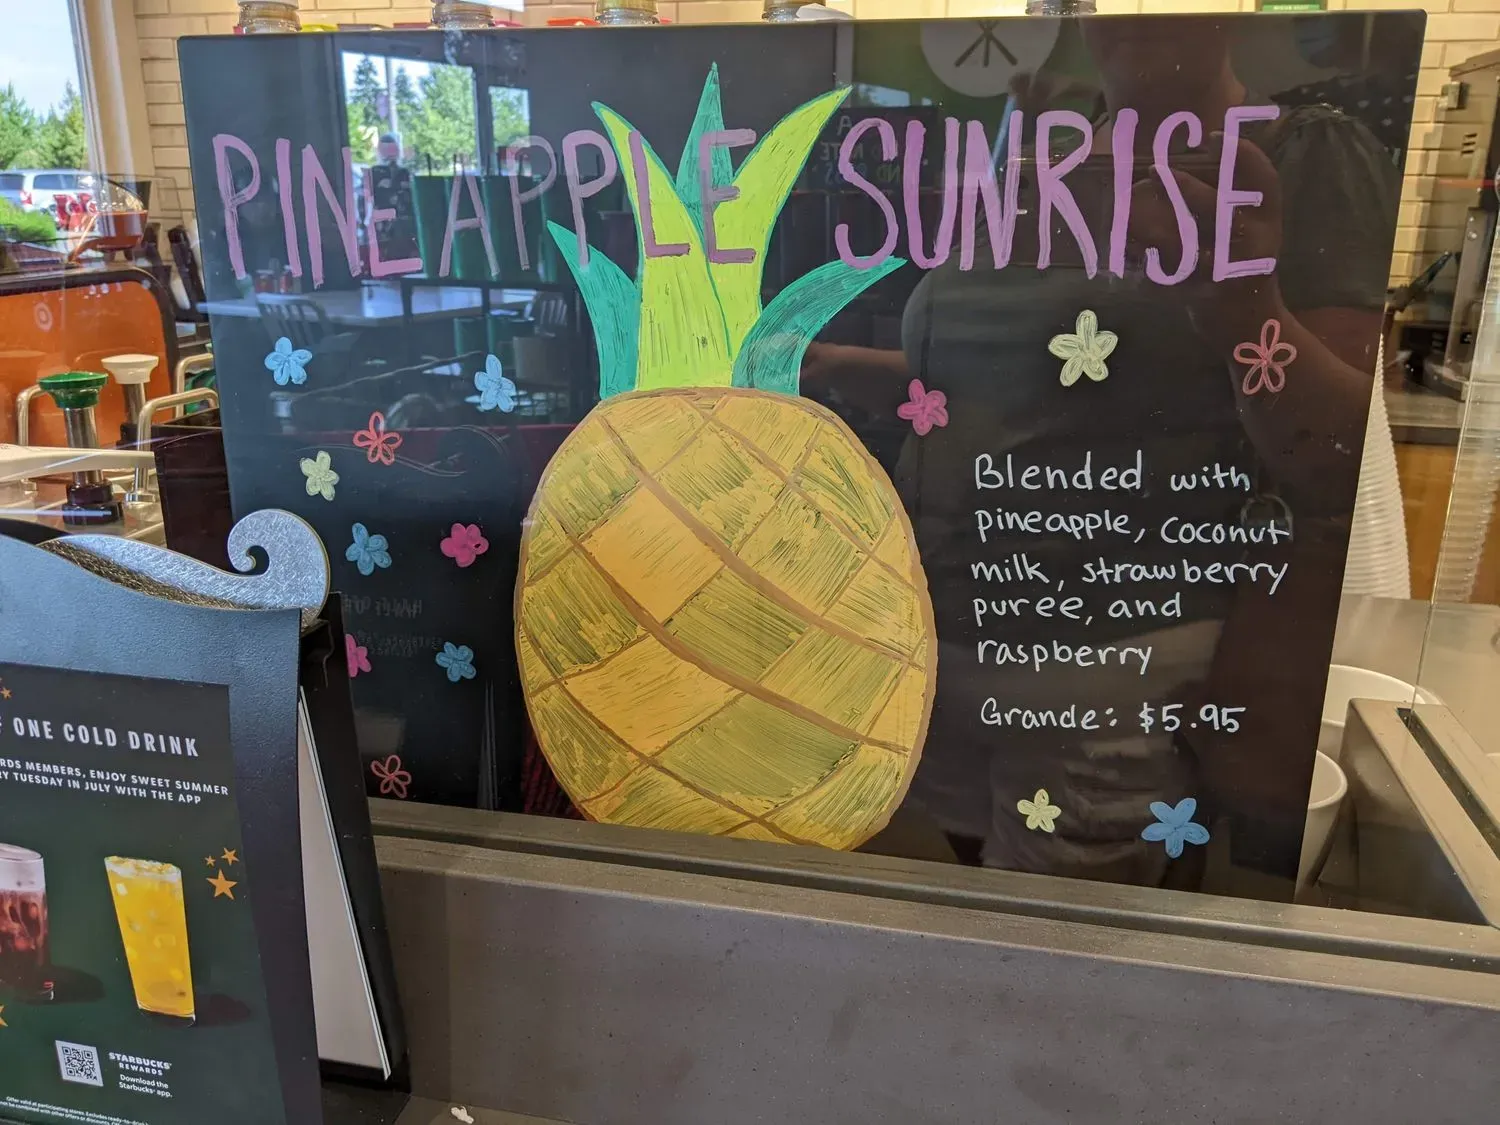 PINEAPPLE SUNRISE
Blended with
pineapple, coconut
milk, strawberry
puree, and
raspberry
Grande: $5.95
ONE COLD DRINK
MEMBERS, ENJOY SWEET SUMMER
TUESDAY IN JULY WITH THE APP
STARBUCKS®
REWARDS
Download the
Starbucks® app.
Offer valid at participating stores. Excludes